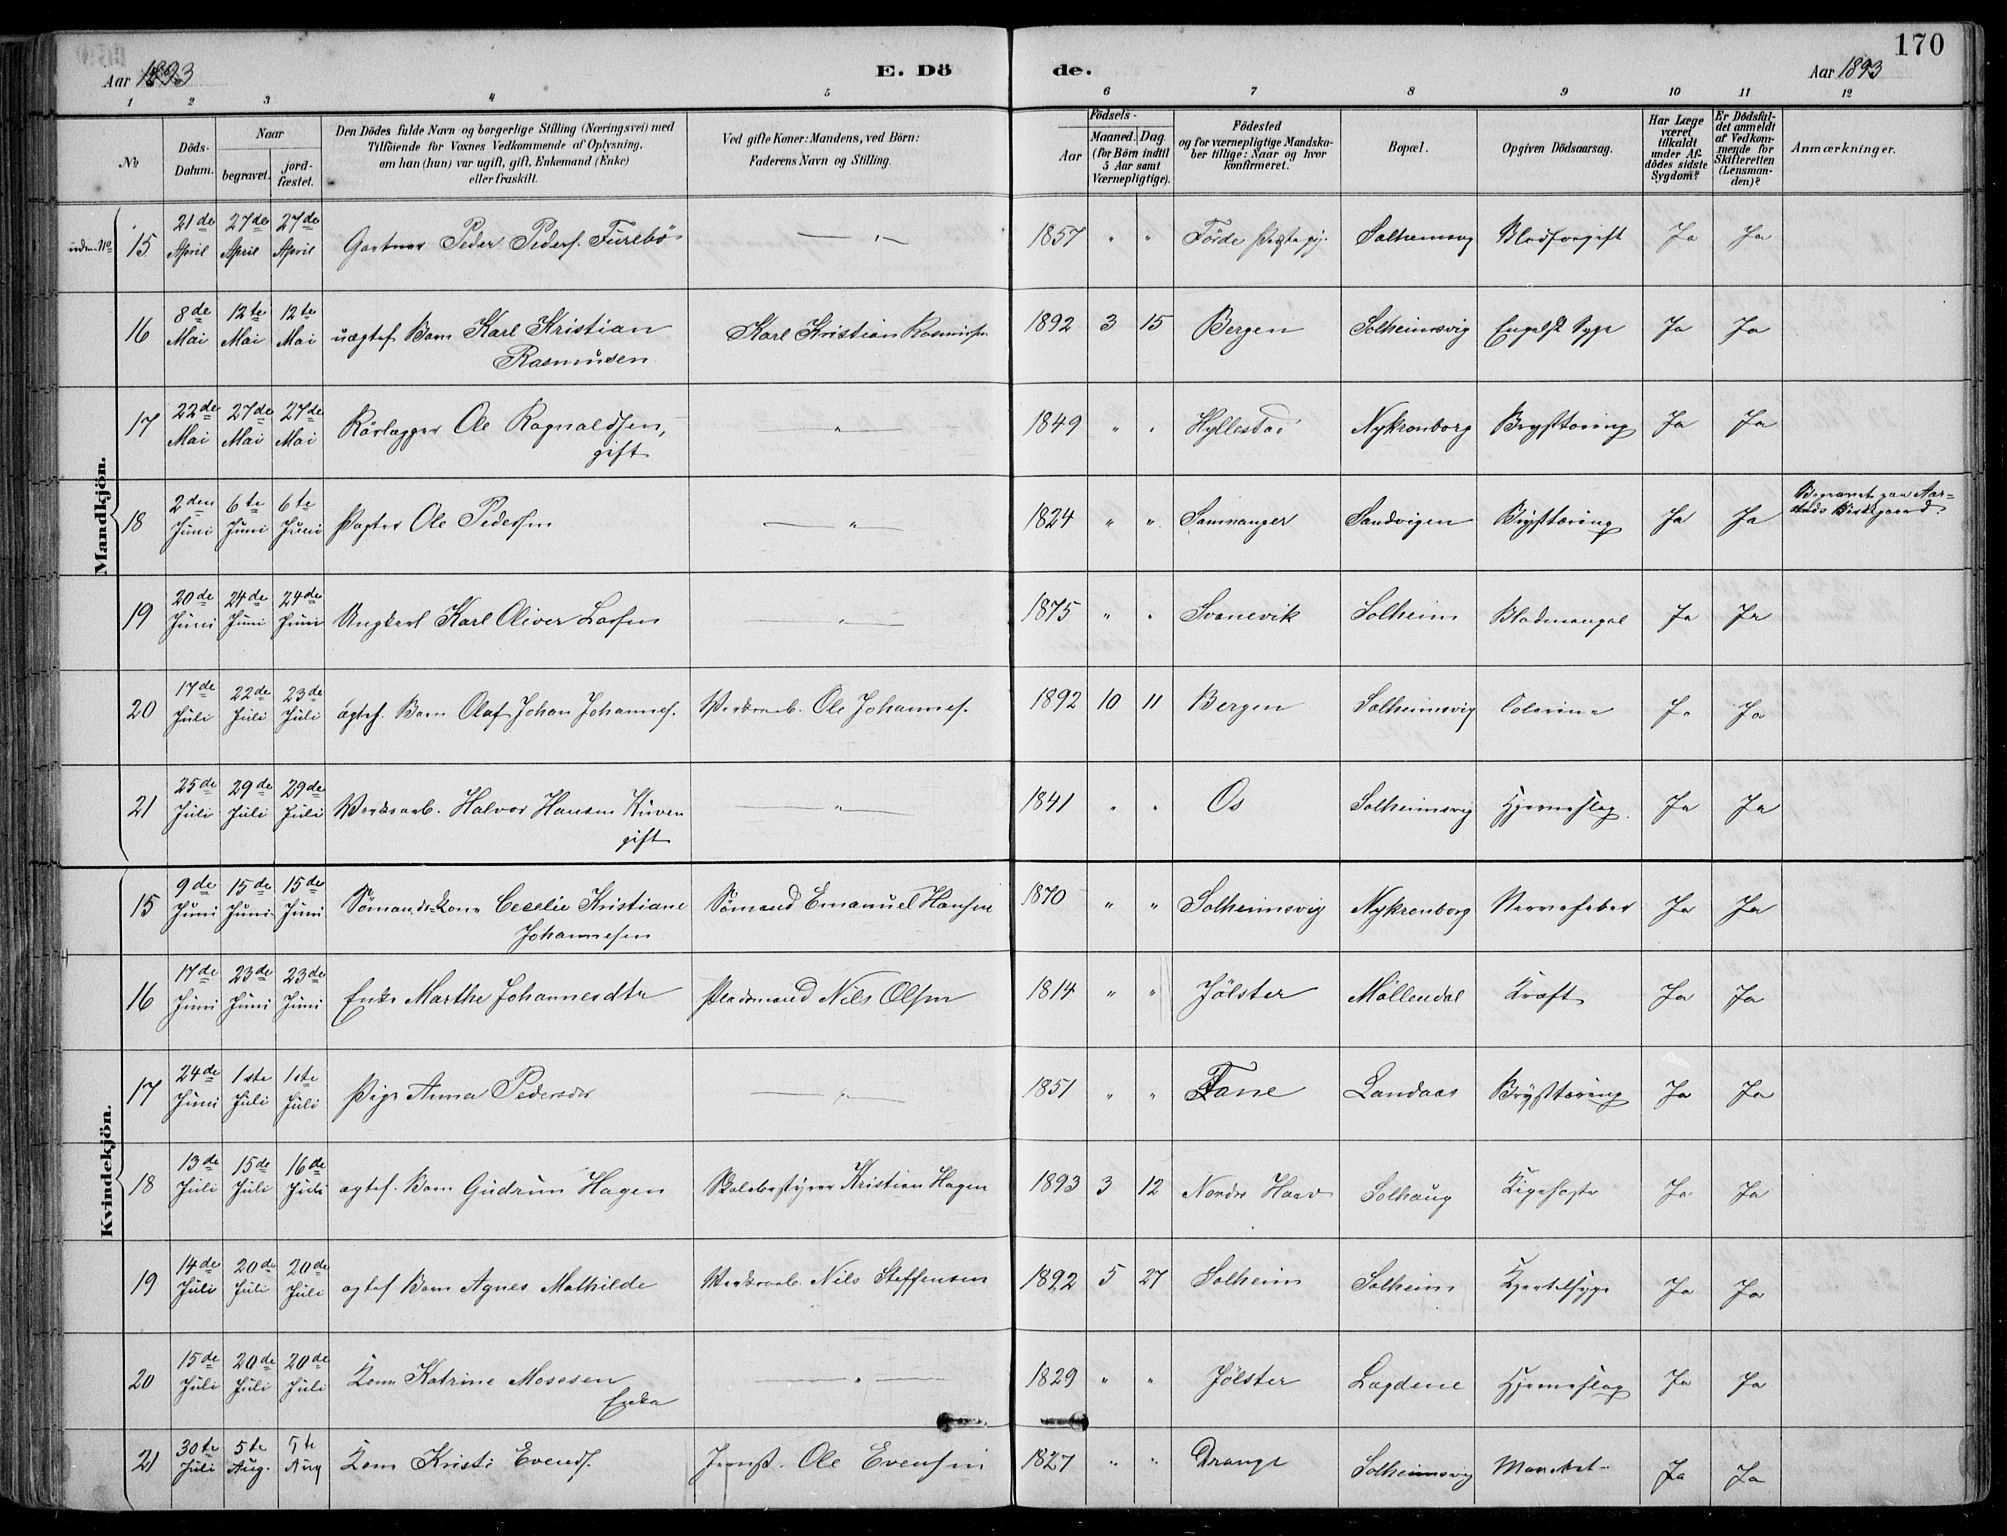 170
Aar 1893 E. Dö de. Aar 1893
1 2 3 4 5 6 7 8 9 10 11 12
No
Döds-Datum.
Naar
begravet.
jord-fæstet.
Den Dödes fulde Navn og borgerlige Stilling (Næringsvei) med
Tilföiende for Voxnes Vedkommende af Oplysning,
om han (hun) var ugift, gift, Enkemand (Enke)
eller fraskilt.
Ved gifte Koner: Mandens, ved Börn:
Faderens Navn og Stilling.
Födsels-
Aar
Maaned. Dag.
(for Börn indtil
5 Aar samt
Værnepligtige).
Födested
og for værnepligtige Mandska-
ber tillige: Naar og hvor
konfirmeret.
Bopæl.
Opgiven Dödsaarsag.
Har Læge
været
tilkaldt
under Af-
dödes sidste
Sygdom?
Er Dödsfal-
det anmeldt
af Vedkom-
mende for
Skifteretten
(Lensman-
den)?
Anmærkninger.
Mandkjön.
15 21de April 27de April 27de April Gartner Peder Peders. Furebö " 1857 " " Förde Solheimsvg Blodforgift Ja Ja
16 8de Mai 12te Mai 12te Mai uægtef Barn Karl Kristian Karl Kristian Rasmussen 1892 3 15 Bergen Solheimsvig Engelsk Syge Ja Ja
Rasmusen
17 22de Mai 27de Mai 27de Mai Rörlægger Ole Ragnaldsen, " 1849 " " Hyllestad Nykronborg Brysttæring Ja Ja
gift
18 2den Juni 6te Juni 6te Juni Pagter Ole Pedersen " 1824 " " Samnanger Sandvigen Brysttæring Ja Ja Begravet paa Aar-
stads Kirkegaard.
19 20de Juni 24de Juni 24de Juni Ungkarl Karl Oliver Larsen " 1875 " " Svanevik Solheim Blodmangel Ja Ja
20 17de Juli 22de Juli 23de Juli ægtef. Barn Olaf Johan Johannes. Verksarb. Ole Johannes. 1892 10 11 Bergen Solheimsvig Colerine Ja Ja
21 25de Juli 29de Juli 29de Juli Verksarb. Halvor Hansen Kuven " 1841 " " Os Solheimsvig Hjerneslag. Ja Ja
gift
Kvindekjön.
15 9de Juni 15de Juni 15de Juni Sömandskone Cecelie Kristiane Sömand Emanuel Hansen 1870 " " Solheimsvig Nykronborg Nervefeber Ja Ja
Johannesen
16 17de Juni 23de Juni 23de Juni Enke Marthe Johannesdtr Pladsmand Nils Olsen 1814 " " Jölster Möllendal Kræft Ja Ja
17 24de Juni 1ste Juli 1ste Juli Pige Anna Pedersdr " 1851 " " Fane Landaas Brysttæring Ja Ja
18 13de Juli 15de Juli 16de Juli ægtef. Barn Gudrun Hagen Skolebestyrer Kristian Hagen 1893 3 12 Nordre Solhaug Kigehoste Ja Ja
19 14de Juli 20de Juli 20de Juli ægtef Barn Agnes Mathilde Verksarb. Nils Steffensen 1892 5 27 Solheim Solheim Kjertelsyge Ja Ja
20 15de Juli 20de Juli 20de Juli Kone Katrine Mosesen " 1829 " " Jölster Lægdene Hjerneslag Ja Ja
Enke
21 30te Juli 5te Aug. 5te Aug Kone Kristi Evends. Ole Evensen 1827 " " Drange Solheimsvig Ja Ja